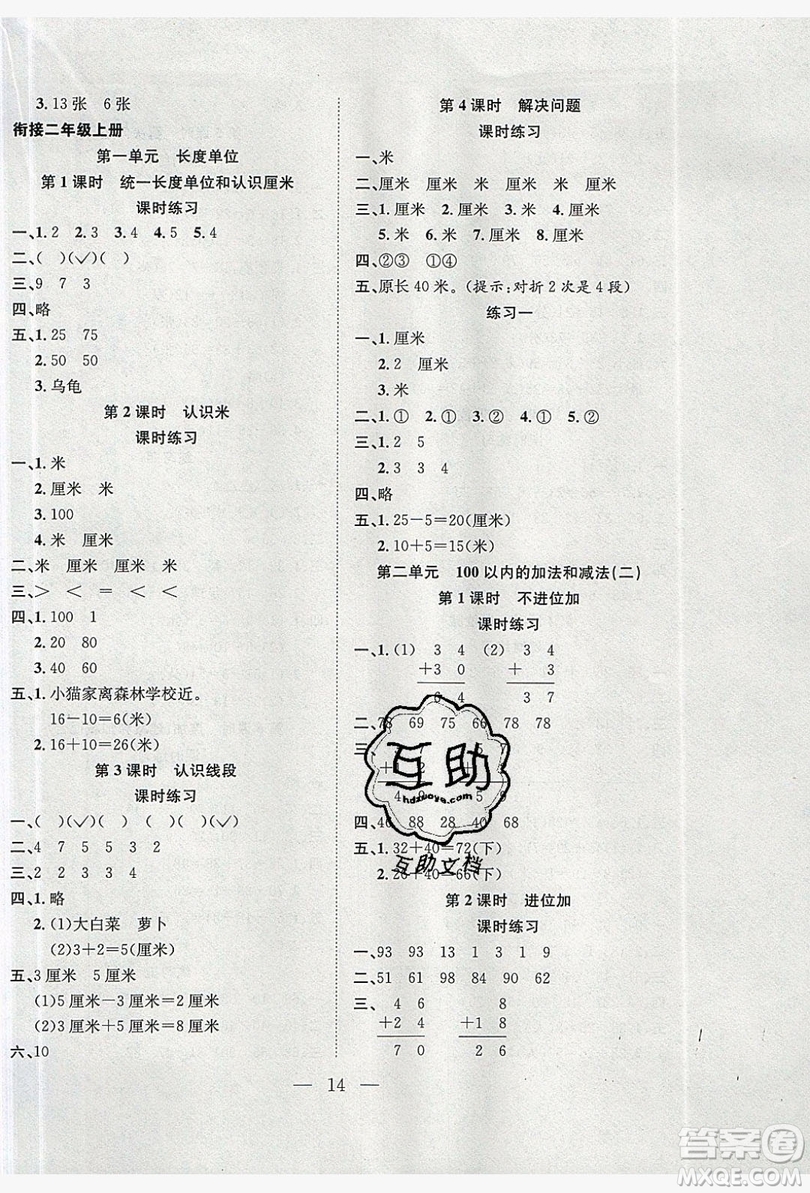 3. 13张 6张
衔接二年级上册
第一单元 长度单位
第1课时 统一长度单位和认识厘米
课时练习
一、1. 2 2. 3 3. 4 4. 5 5. 4
二、( )(✓)( )
三、9 7 3
四、略
五、1. 25 75
2. 50 50
3. 乌龟
第2课时 认识米
课时练习
一、1. 米
2. 厘米 米
3. 100
4. 米 厘米
二、米 厘米 厘米 厘米
三、> < = < <
四、1. 100 1
2. 20 80
3. 40 60
五、1. 小猫家离森林学校近。
16-10=6(米)
2. 16+10=26(米)
第3课时 认识线段
课时练习
一、( )(✓)( ) ( )(✓)( )
二、4 7 5 5 3 2
三、1 2 2 3 3 4
四、1. 略
2. (1)大白菜 萝卜
(2)3+2=5(厘米)
五、3厘米 5厘米
(1)5厘米-3厘米=2厘米
(2)3厘米+5厘米=8厘米
六、10
第4课时 解决问题
课时练习
一、米
二、厘米 厘米 厘米 米
三、1. 厘米 2. 米 3. 厘米 4. 厘米
5. 米 6. 米 7. 厘米 8. 厘米
四、②③ ①④
五、原长40米。(提示:对折2次是4段)
练习一
一、1. 厘米
2. 2 厘米
3. 米
二、1. ① 2. ① 3. ② 4. ① 5. ②
三、1. 2 5
2. 3 3 4
四、略
五、1. 25-5=20(厘米)
2. 10+5=15(厘米)
第二单元 100以内的加法和减法(二)
第1课时 不进位加
课时练习
一、1. (1) 3 4 (2) 3 4
+3 0 + 3
6 4 3 7
二、78 69 75 66 78 78
三、
+ 2
4 9 5 9
四、40 88 28 40 68
五、1. 32+40=72(下)
2. 26+40=66(下)
第2课时 进位加
课时练习
一、93 93 13 1 3 1 9
二、51 61 98 84 90 62
三、 4 6 8
+2 4 +1 8
7 0 2 6
14
互助
hdzuoye.com
互助文档
答案圈
MXQE.COM